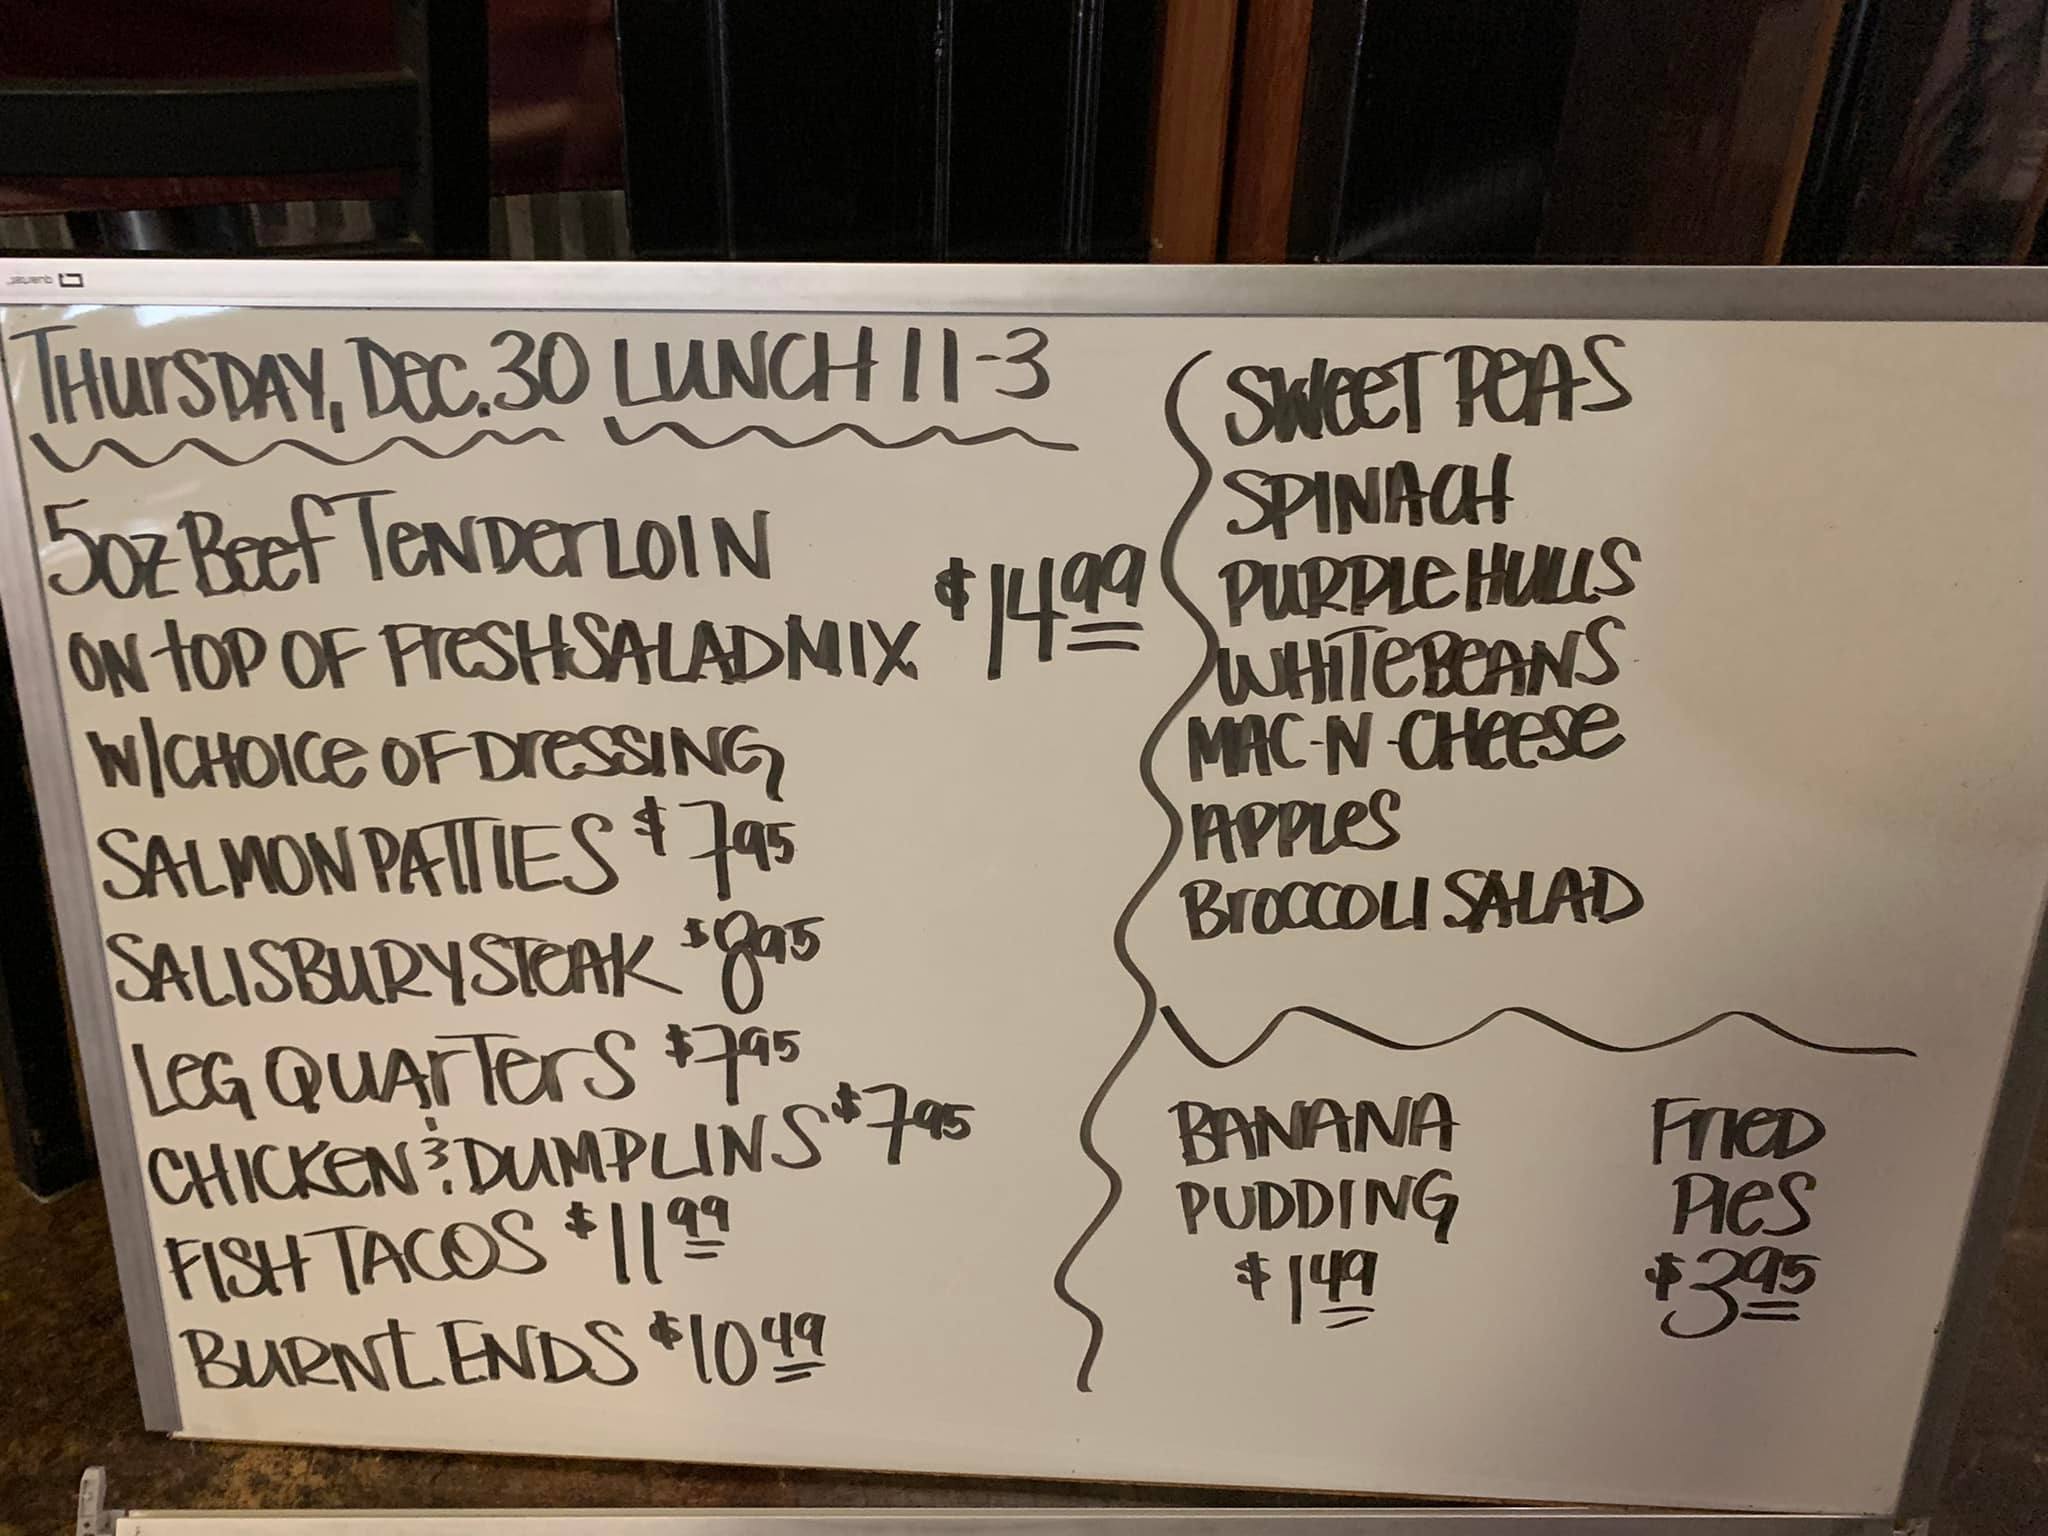 THURSDAY, DEC. 30 LUNCH 11-3
5oz BEEF TENDERLOIN
ON TOP OF FRESH SALAD MIX $14.99
W/CHOICE OF DRESSING
SALMON PATTIES $7.95
SALISBURY STEAK $8.95
LEG QUARTERS $7.95
CHICKEN & DUMPLINS $7.95
FISH TACOS $11.99
BURNT ENDS $10.49
SWEET PEAS
SPINACH
PURPLE HULLS
WHITE BEANS
MAC-N-CHEESE
APPLES
BROCCOLI SALAD
BANANA
PUDDING
$1.49
FRIED
PIES
$3.95